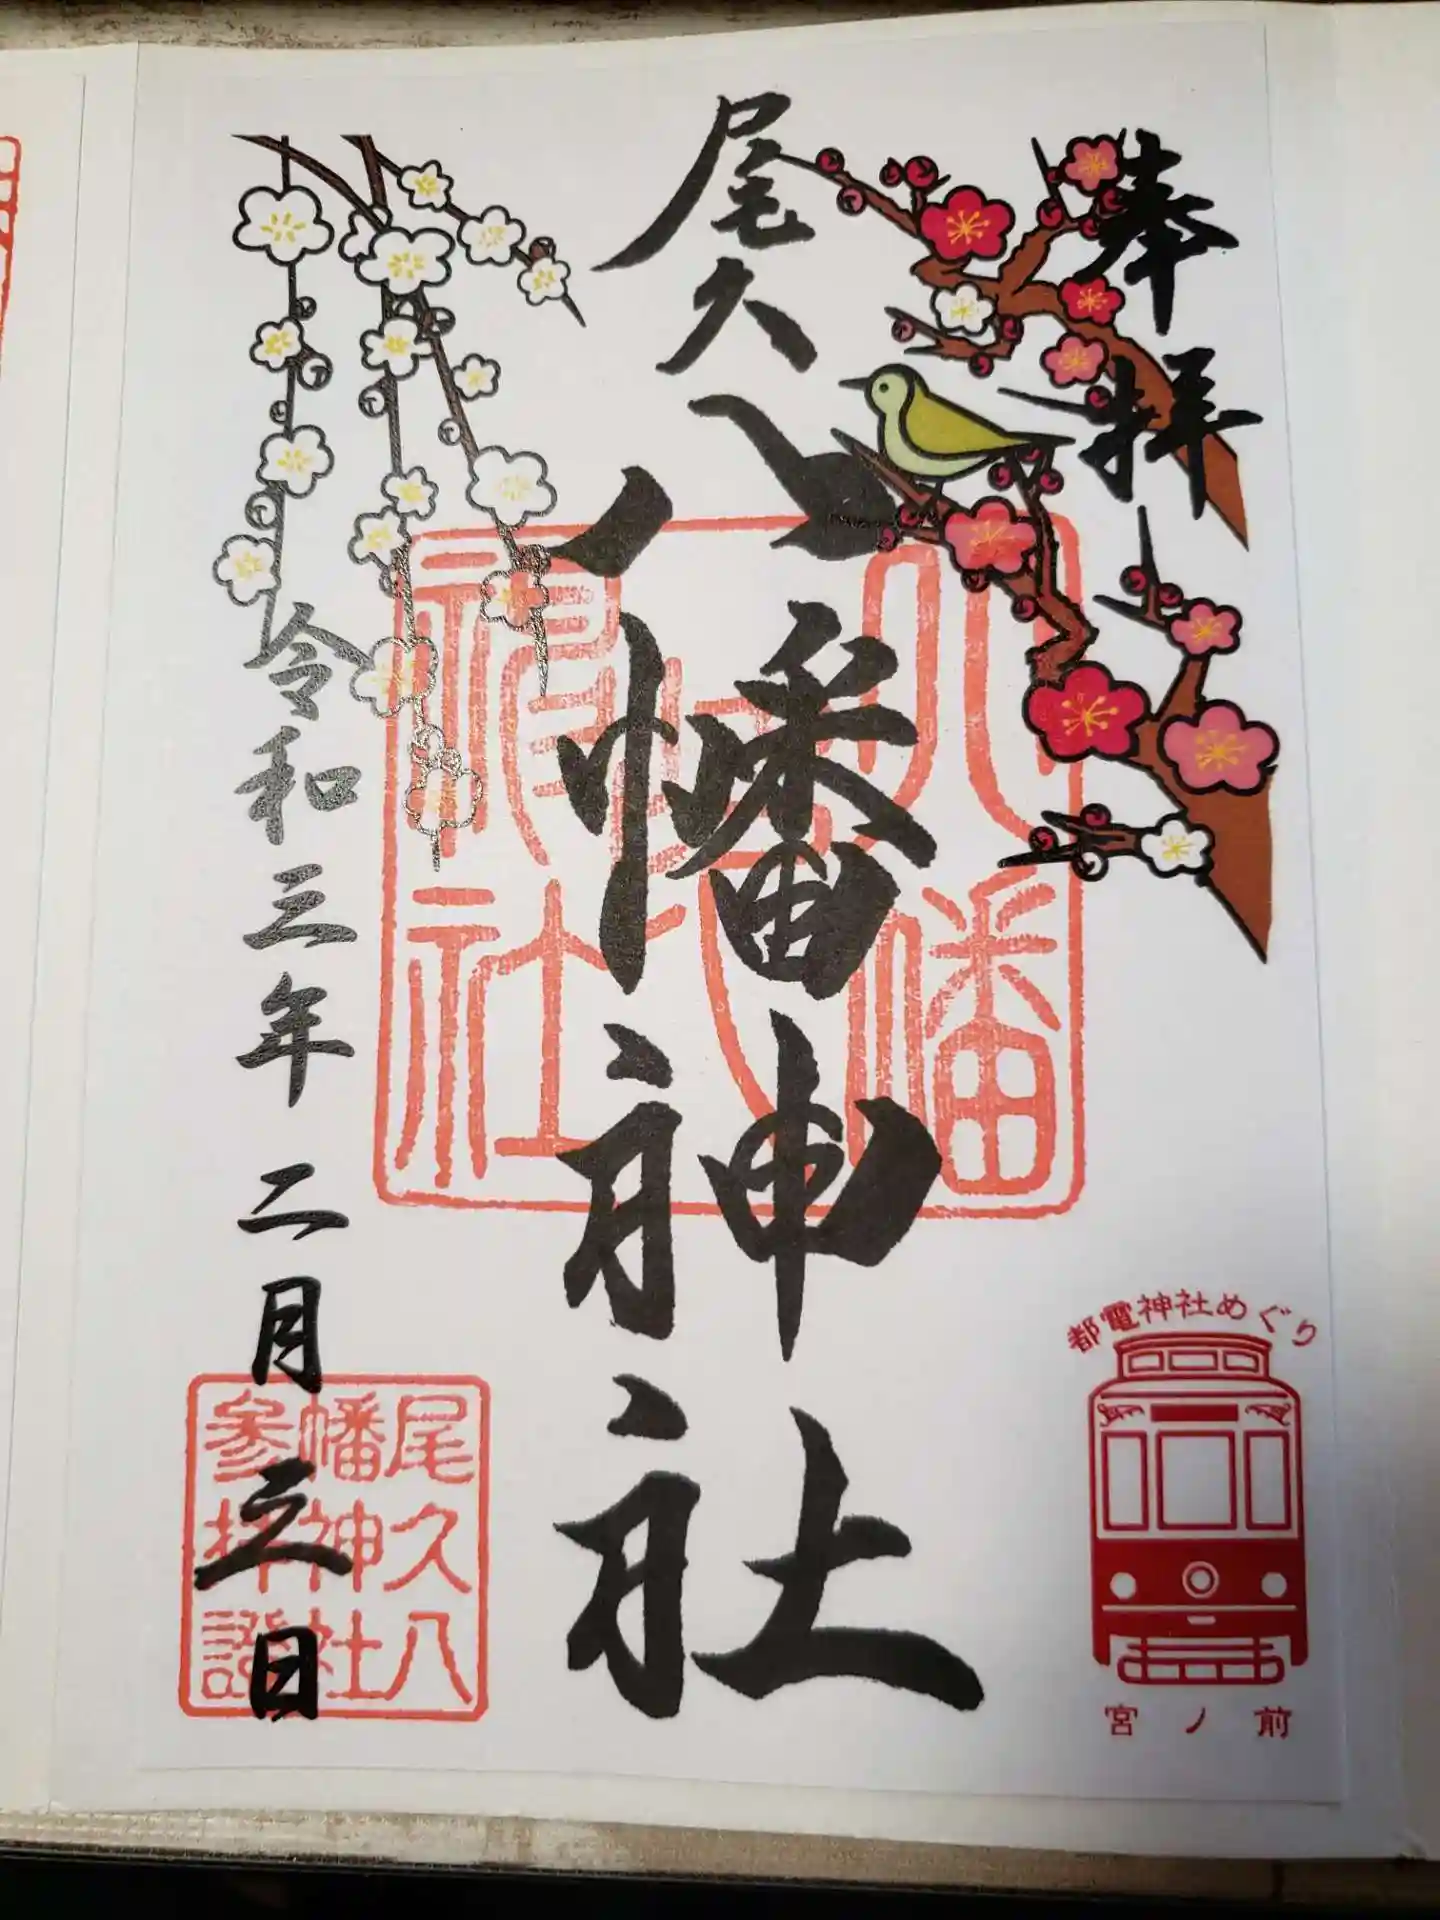 奉拝
尾久
八幡神社
八幡
神社
令和三年 二月 三日
尾久八
幡神社
参拝證
都電神社めぐり
宮ノ前